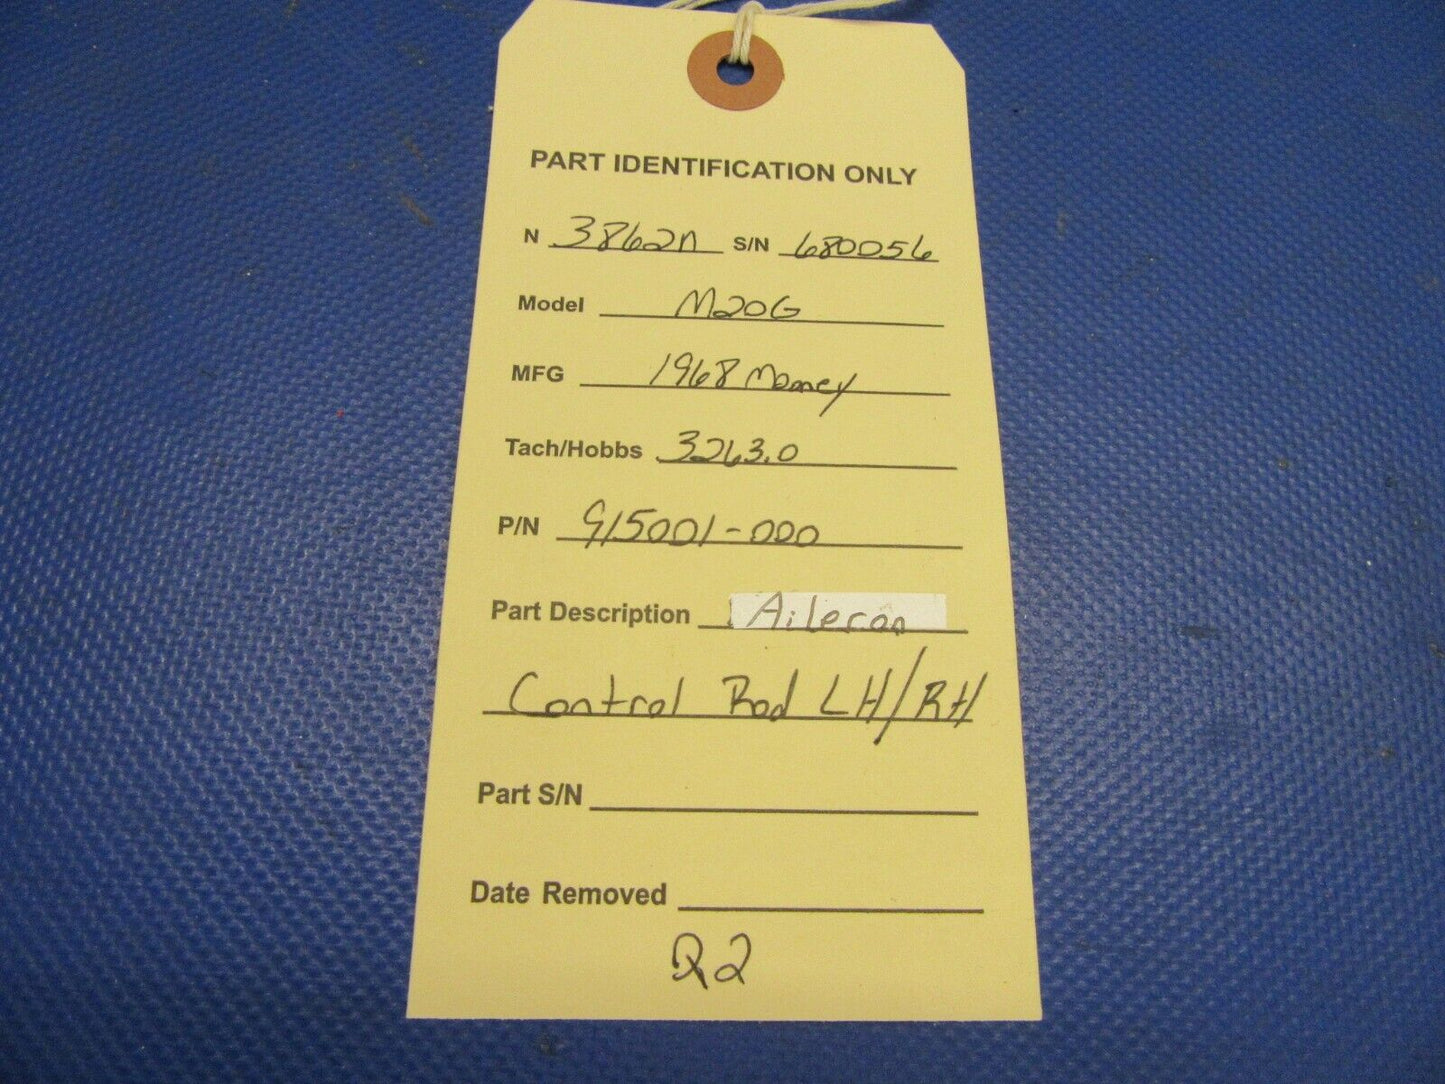 PART IDENTIFICATION ONLY
N 3862N S/N 680056
Model M20G
MFG 1968 Mooney
Tach/Hobbs 3263.0
P/N 915001-000
Part Description Aileron
Control Rod LH/RH
Part S/N
Date Removed